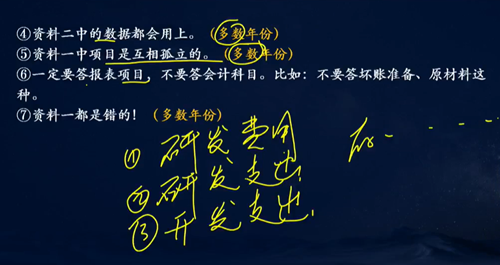 ④资料二中的数据都会用上。（多数年份）
⑤资料一中项目是互相孤立的。（多数年份）
⑥一定要答报表项目，不要答会计科目。比如：不要答坏账准备、原材料这
种。
⑦资料一都是错的！（多数年份）
① 研发费用
② 研发支出
③ 开发支出